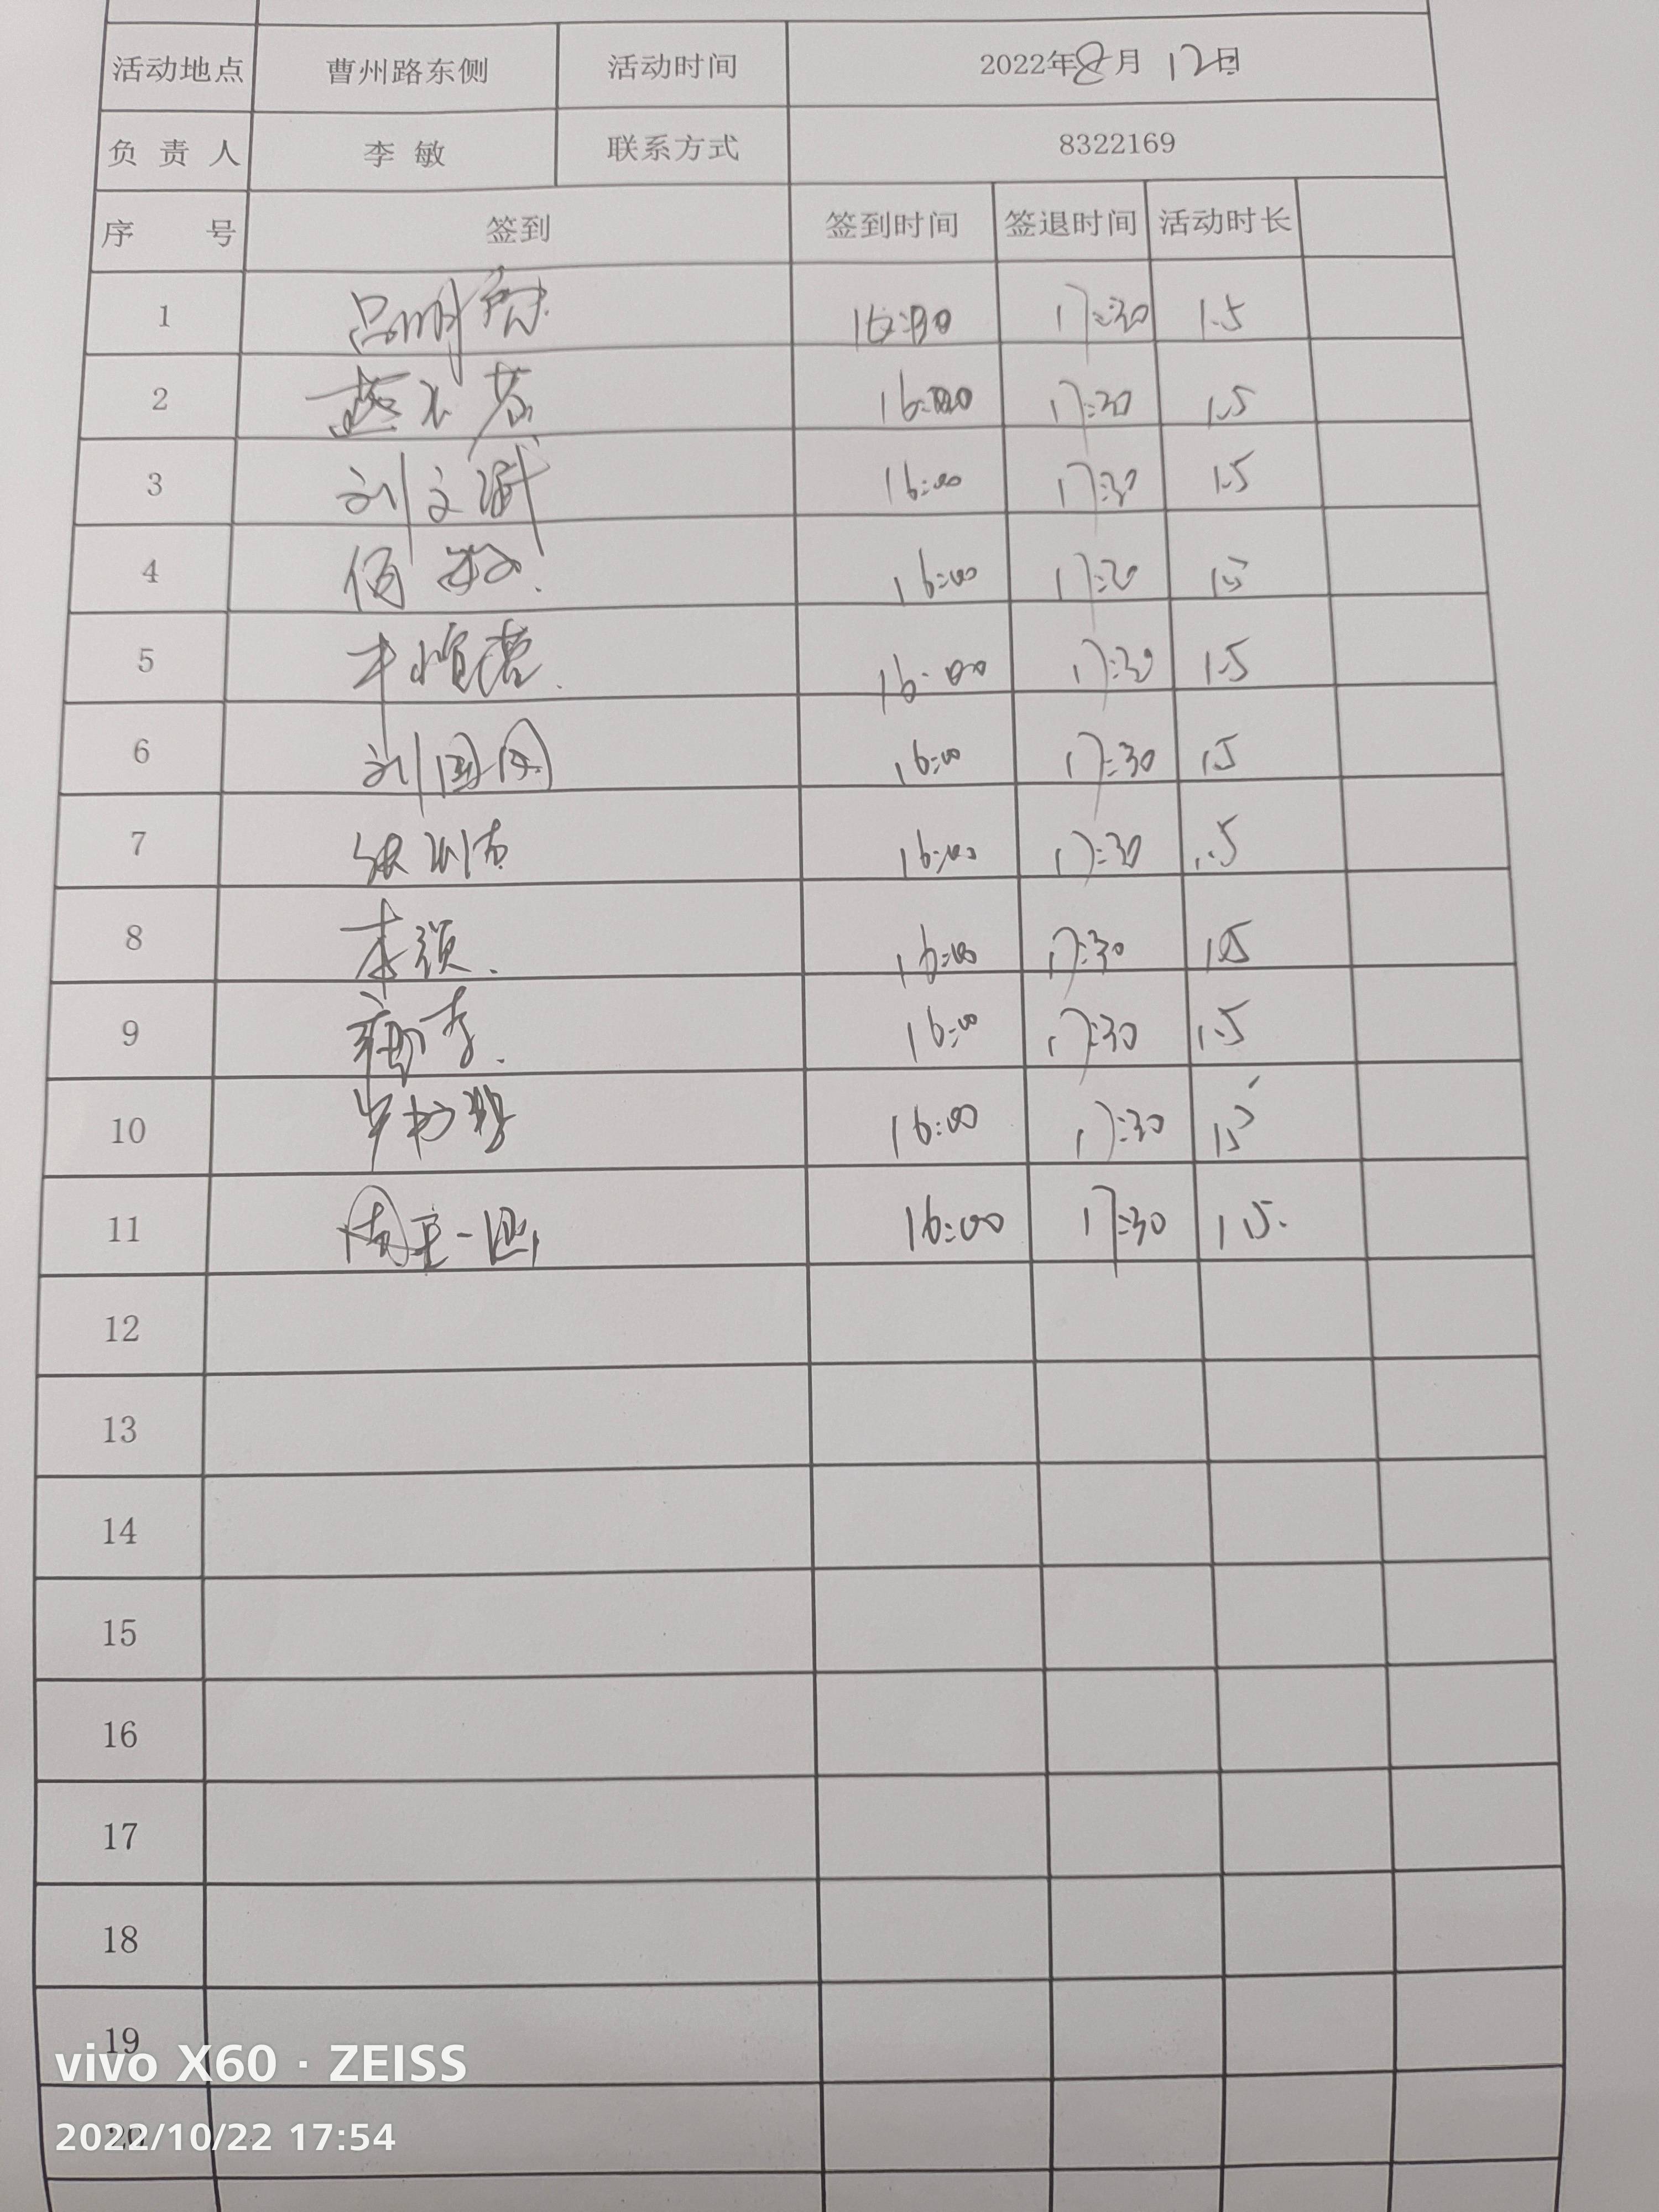 活动地点 曹州路东侧 活动时间 2022年8月12日
负责人 李敏 联系方式 8322169
序号 签到 签到时间 签退时间 活动时长
1 吕明 17:30 1.5
2 16:00 17:30 1.5
3 刘文斌 16:00 17:30 1.5
4 16:00 17:30 1.5
5 16:00 17:30 1.5
6 刘国 16:00 17:30 1.5
7 16:00 17:30 1.5
8 李颖 16:00 17:30 1.5
9 16:00 17:30 1.5
10 16:00 17:30 1.5
11 16:00 17:30 1.5
12
13
14
15
16
17
18
19
vivo X60 · ZEISS
20
2022/10/22 17:54